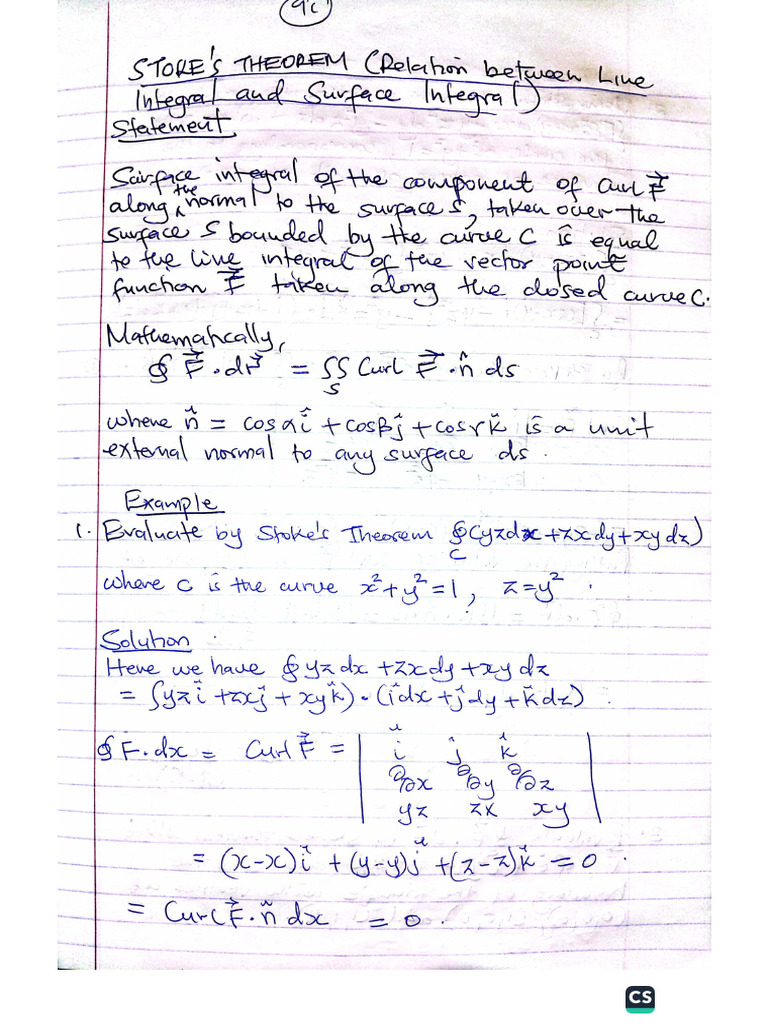 9c
STOKE'S THEOREM (Relation between Line
Integral and Surface Integral)
Statement
Sairface integral of the component of Curl F⃗
along the normal to the surface S, taken over the
surface S bounded by the curve C is equal
to the line integral of the vector point
function F⃗ taken along the closed curve C.
Mathematically,
∮ F⃗ · dr⃗ = ∬ Curl F⃗ · n̂ ds
S
where n̂ = cosαî + cosβĵ + cosγk̂ is a unit
external normal to any surface ds.
Example
1. Evaluate by Stoke's Theorem ∮(yzdx + zxdy + xydz)
C
where C is the curve x² + y² = 1, z = y².
Solution.
Here we have ∮ yzdx + zxdy + xydz
= ∫(yzî + zxĵ + xyk̂) · (îdx + ĵdy + k̂dz).
∮ F · dx = Curl F⃗ = | î ĵ k̂ |
∂/∂x ∂/∂y ∂/∂z
yz zx xy
= (x-x)î + (y-y)ĵ + (z-z)k̂ = 0.
= Curl F⃗ · n̂ dx = 0.
CS